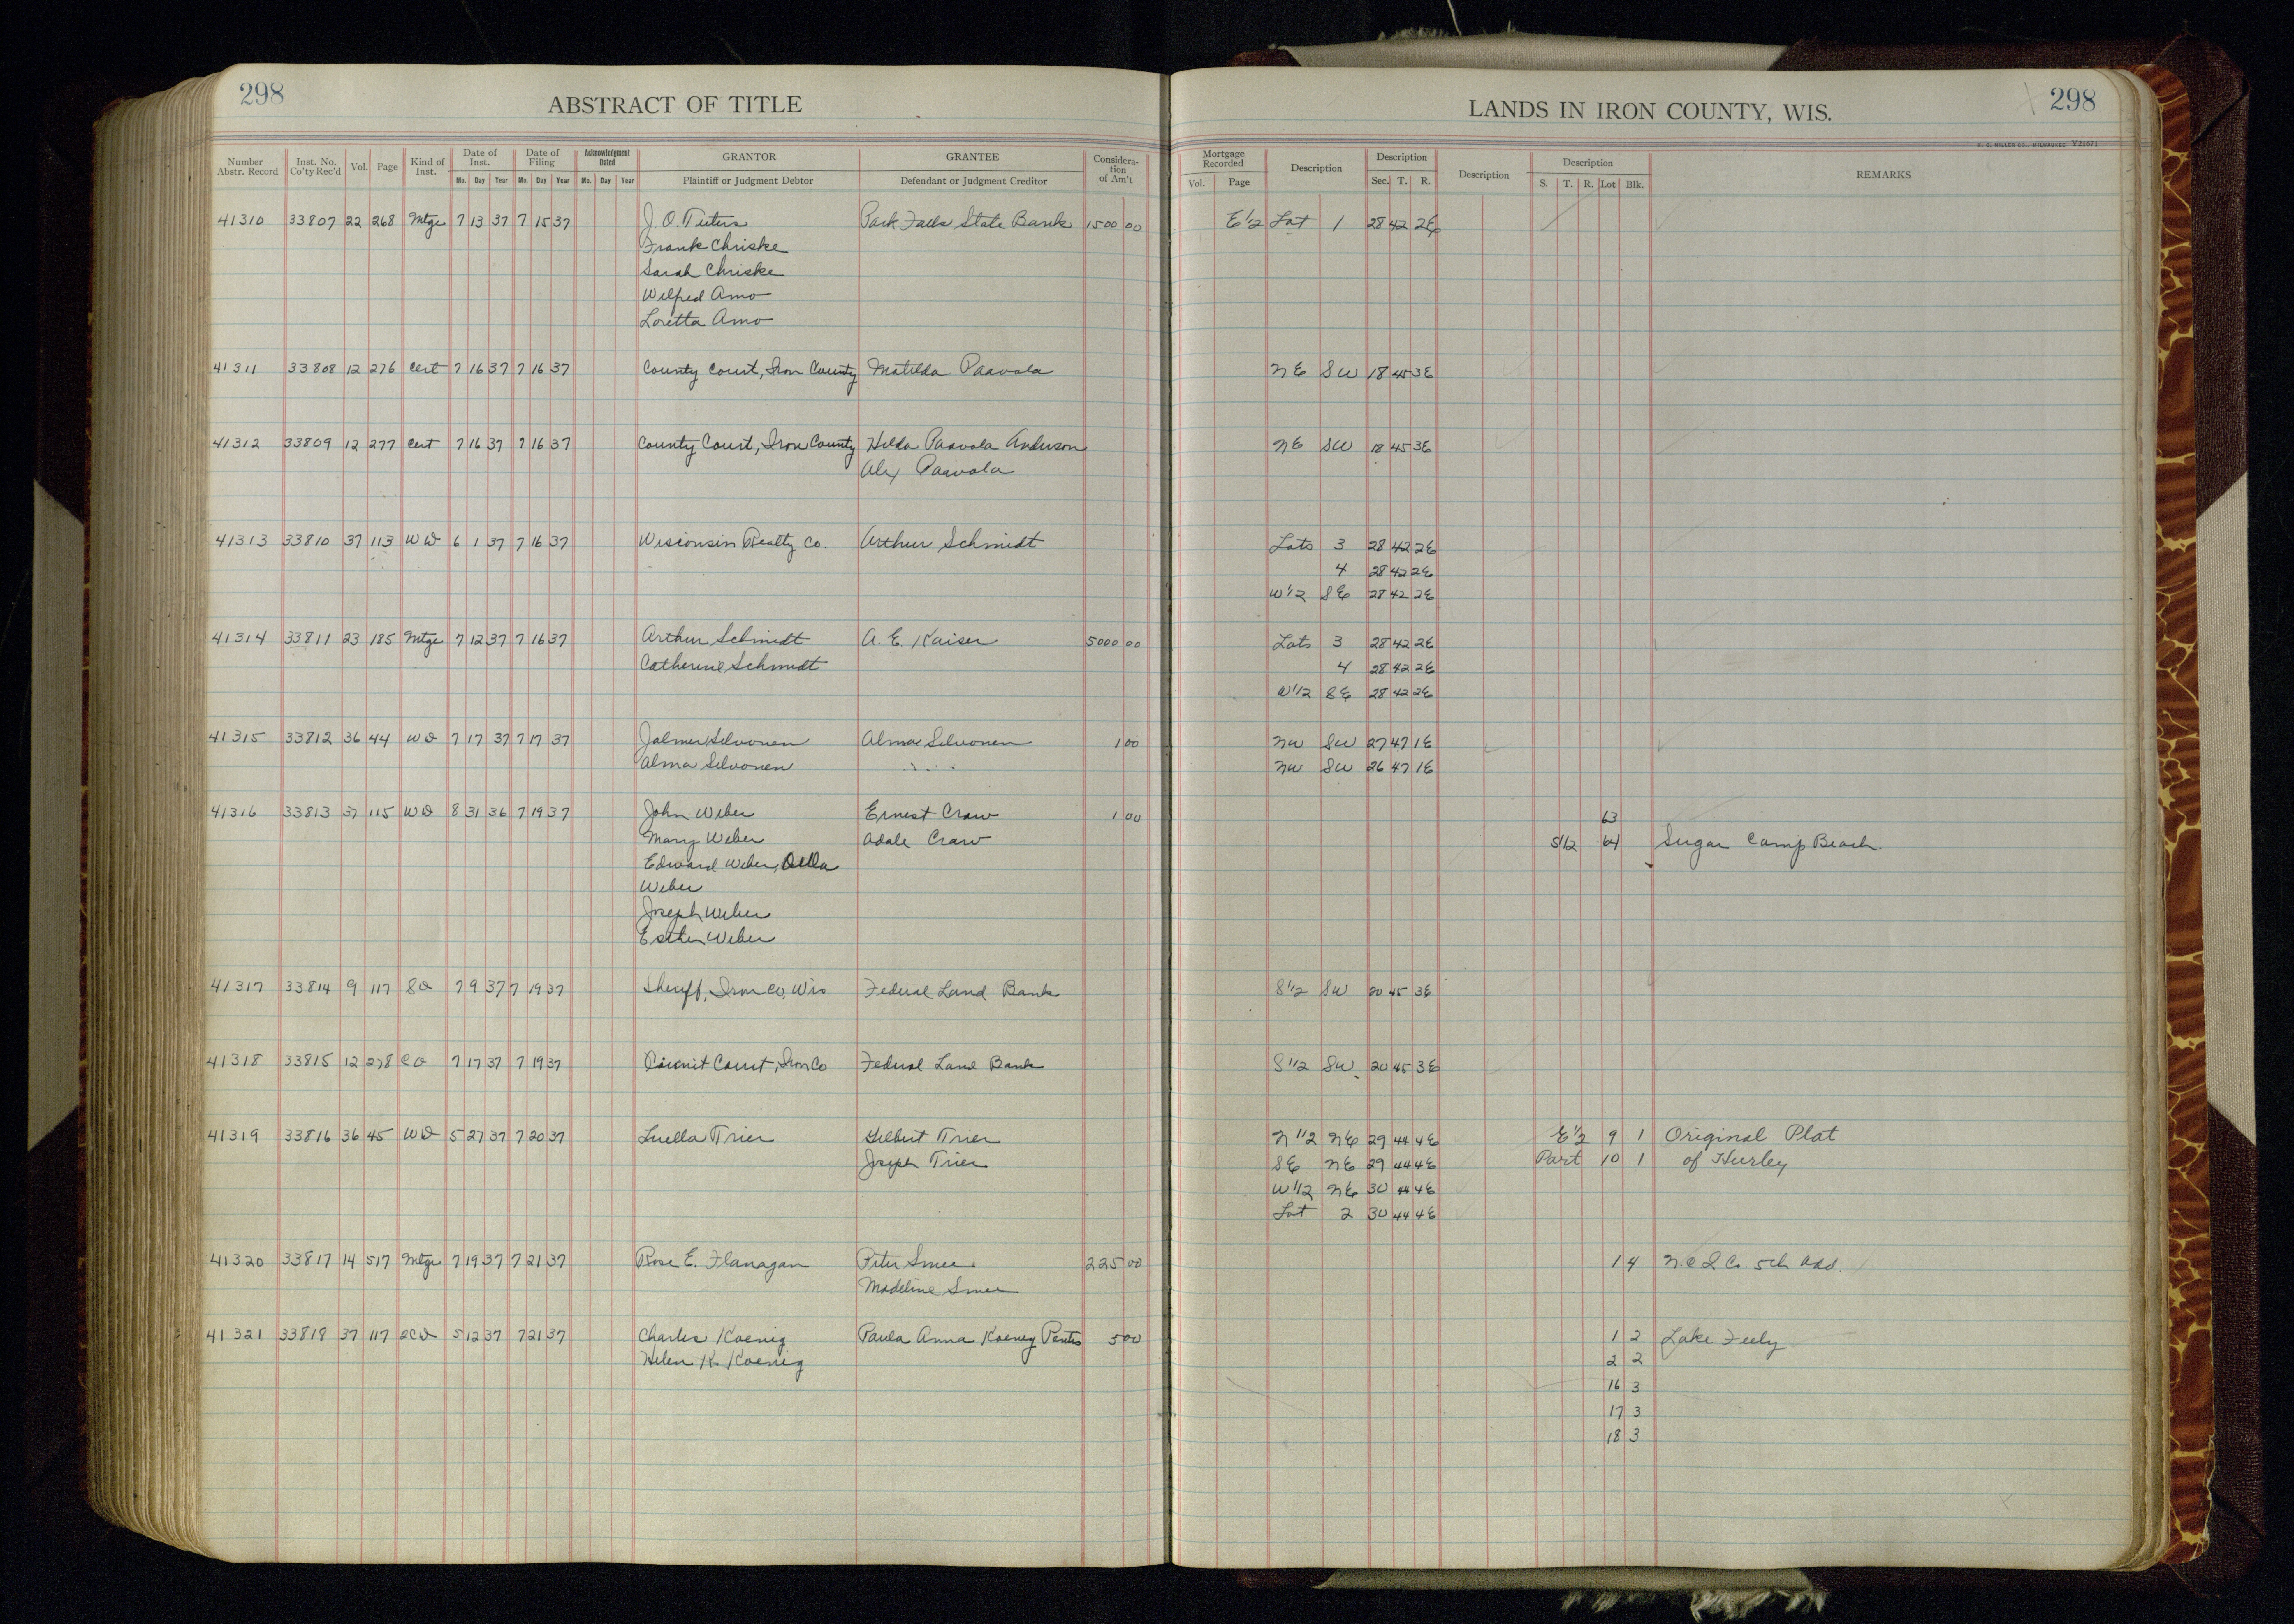 298
ABSTRACT OF TITLE
Number Abstr. Record Inst. No. Co'ty Rec'd Vol. Page Kind of Inst. Date of Inst. Mo. Day Year Date of Filing Mo. Day Year Acknowledgment Dated Mo. Day Year GRANTOR Plaintiff or Judgment Debtor GRANTEE Defendant or Judgment Creditor Consideration of Am't
41310 33807 22 268 Mtge 7 13 37 7 15 37 J. O. Park Falls State Bank 1500 00
Frank Chriske
Sarah Chriske
Wilfred Amo
Loretta Amo
41311 33808 12 276 Cert 7 16 37 7 16 37 County Court, Iron County Matilda Paavola
41312 33809 12 277 Cert 7 16 37 7 16 37 County Court, Iron County Hilda Paavola Anderson
Alex Paavola
41313 33810 37 113 WD 6 1 37 7 16 37 Wisconsin Realty Co. Arthur Schmidt
41314 33811 23 185 Mtge 7 12 37 7 16 37 Arthur Schmidt A. E. Kaiser 5000 00
Catherine Schmidt
41315 33812 36 44 WD 7 17 37 7 17 37 Jalmer Silvonen Alma Silvonen 1 00
Alma Silvonen
41316 33813 37 115 WD 8 31 36 7 19 37 John Weber Ernest Craw 1 00
Mary Weber Adale Craw
Edward Weber, Della
Weber
Joseph Weber
Esther Weber
41317 33814 9 117 SD 7 9 37 7 19 37 Sheriff, Iron Co, Wis Federal Land Bank
41318 33815 12 278 CO 7 17 37 7 19 37 Circuit Court, Iron Co Federal Land Bank
41319 33816 36 45 WD 5 27 37 7 20 37 Luella Trier Gilbert Trier
Joseph Trier
41320 33817 14 517 Mtge 7 19 37 7 21 37 Rose E. Flanagan Peter Smee 225 00
Madeline Smee
41321 33818 37 117 QCD 5 12 37 7 21 37 Charles Koenig Paula Anna Koenig 5 00
Helen K. Koenig
LANDS IN IRON COUNTY, WIS.
298
H. C. MILLER CO., MILWAUKEE V21671
Mortgage Recorded Vol. Page Description Description Sec. T. R. Description Description S. T. R. Lot Blk. REMARKS
E 1/2 Lot 1 28 42 2E
NE SW 18 45 3E
NE SW 18 45 3E
Lots 3 28 42 2E
4 28 42 2E
W 1/2 SE 28 42 2E
Lots 3 28 42 2E
4 28 42 2E
W 1/2 SE 28 42 2E
NW SW 27 47 1E
NW SW 26 47 1E
63
S 1/2 64 Sugar Camp Beach.
S 1/2 SW 20 45 3E
S 1/2 SW 20 45 3E
N 1/2 NE 29 44 4E E 1/2 9 1 Original Plat
SE NE 29 44 4E Part 10 1 of Hurley
W 1/2 NE 30 44 4E
Lot 2 30 44 4E
1 4 5th Add.
1 2 Lake Feely
2 2
16 3
17 3
18 3